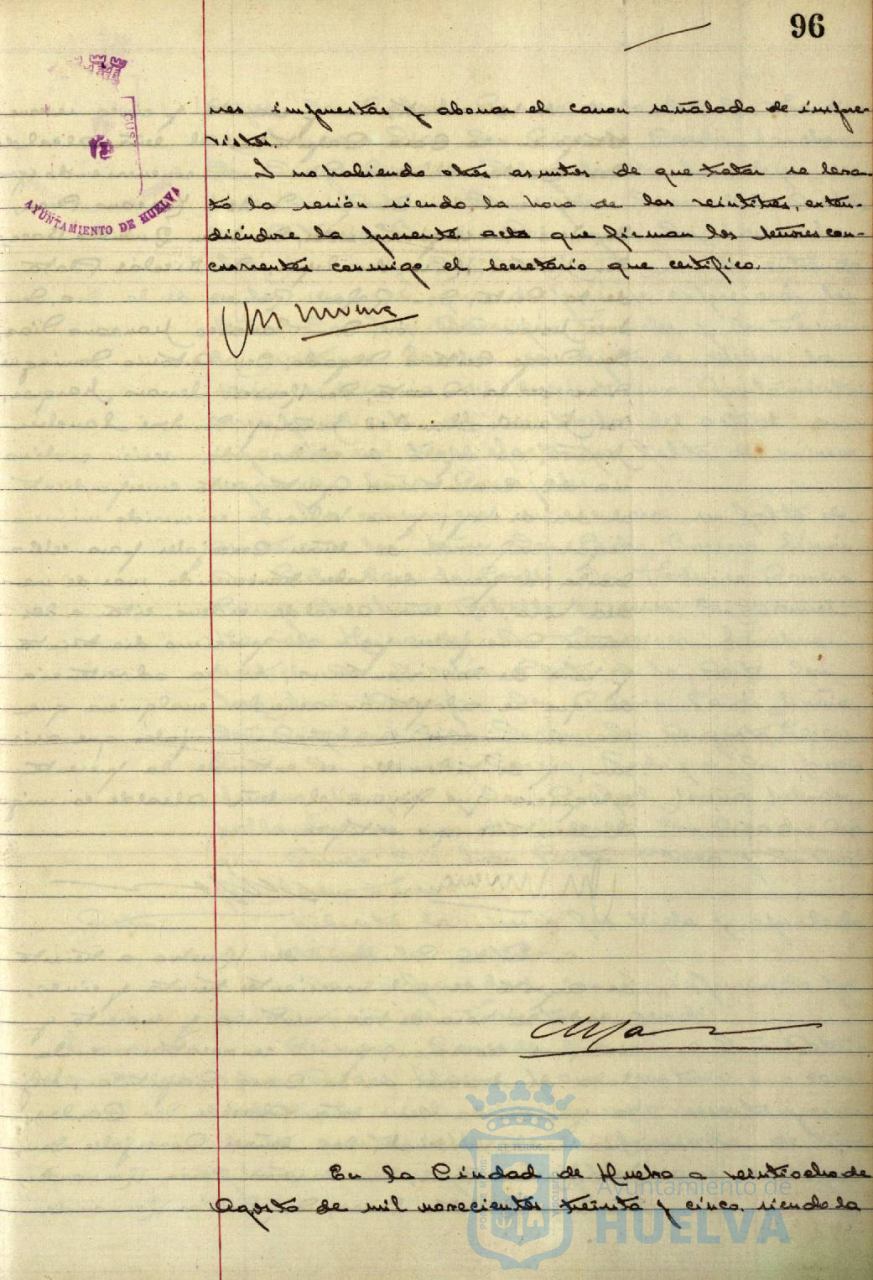 96
nes impuestas y abonar el canon señalado de impre-
vistos.
Y no habiendo otros asuntos de que tratar se levan-
tó la sesión siendo la hora de las veintitres, exten-
diéndose la presente acta que firman los señores con-
currentes conmigo el secretario que certifico.
AYUNTAMIENTO DE HUELVA
En la Ciudad de Huelva a veintiocho de
Agosto de mil novecientos treinta y cinco, siendo la
Ayuntamiento de
HUELVA